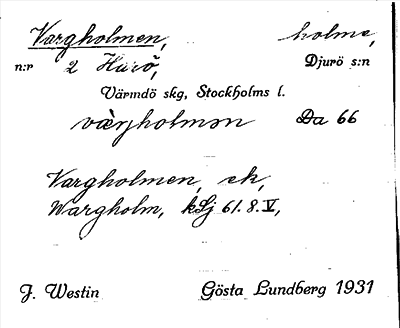 Vargholmen, holme,
n:r 2 Harö, Djurö s:n
Värmdö skg, Stockholms l.
Da 66
Vargholmen, ek,
Wargholm, kSj 61.8.V,
J. Westin Gösta Lundberg 1931